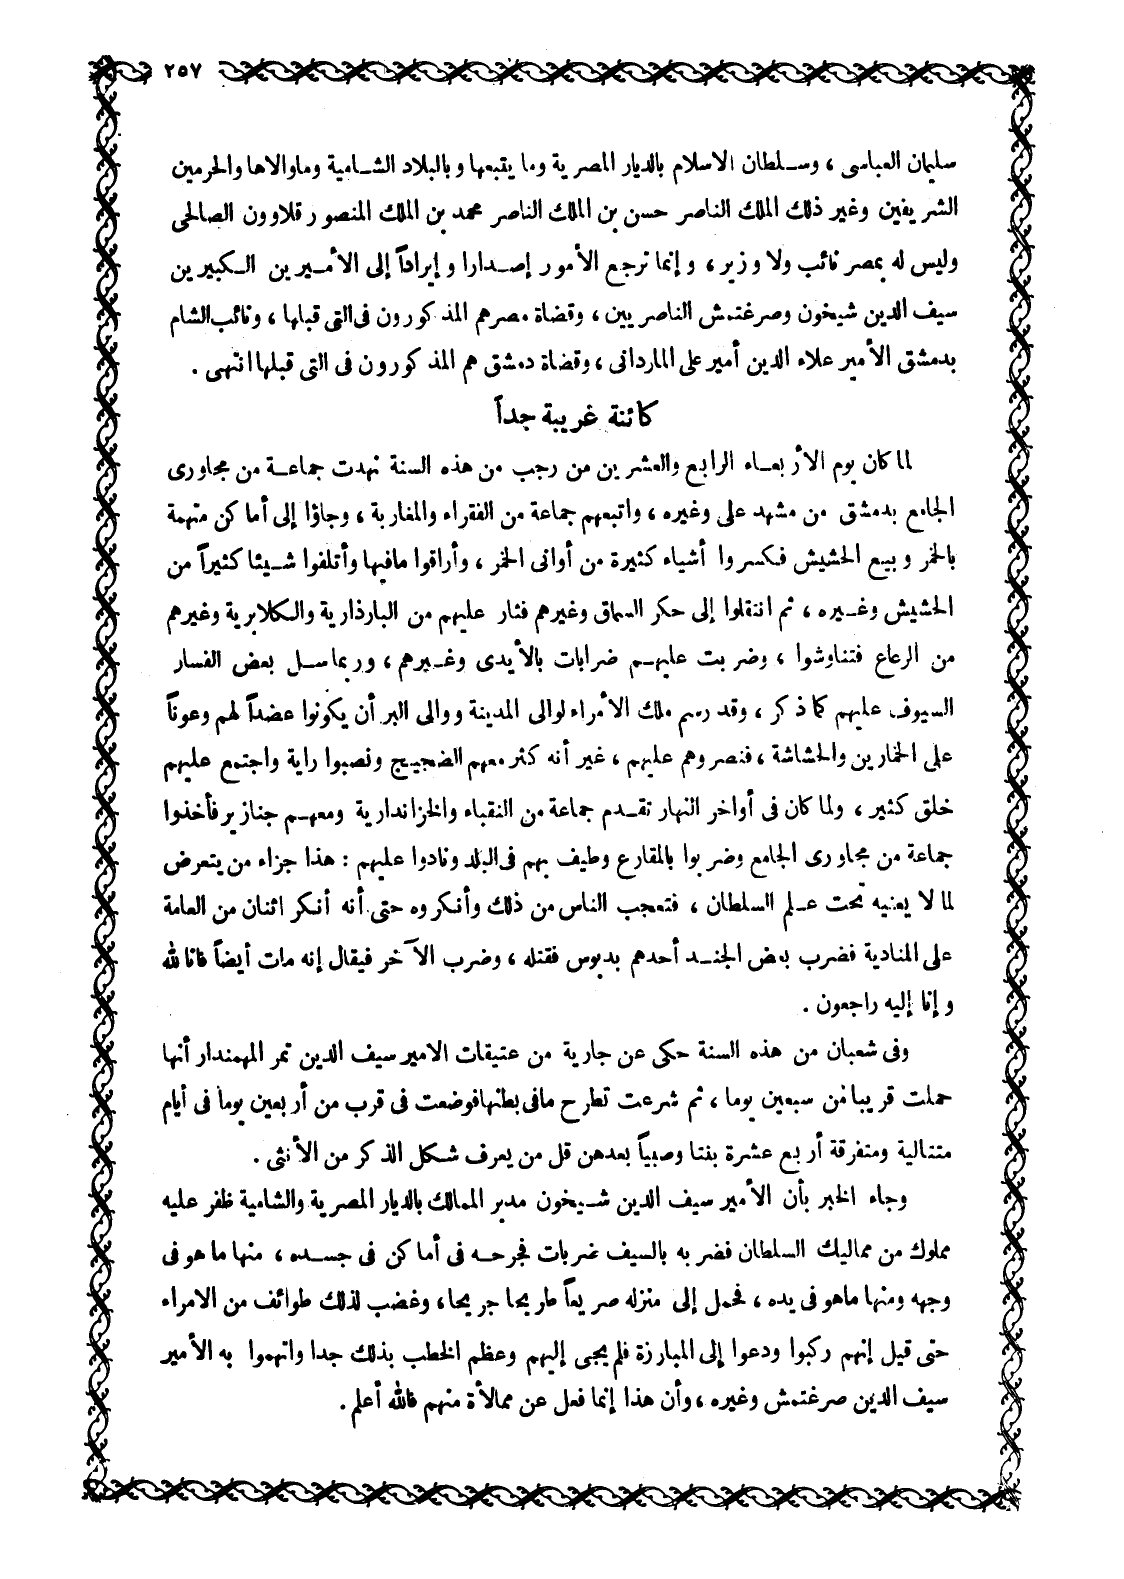 ٢٥٧
سليمان العباسى ، وسلطان الاسلام بالديار المصرية وما يقبعها وبالبلاد الشامية وماوالاها والحرمين
الشريفين وغير ذلك الملك الناصر حسن بن الملك الناصر محمد بن الملك المنصور قلاوون الصالحى
وليس له بمصر نائب ولا وزير ، وإنما ترجع الأمور إصدارا وإيراداً إلى الأميرين الكبيرين
سيف الدين شيخون وصرغتمش الناصريين ، وقضاة مصر هم المذكورون فى التى قبلها ، ونائب الشام
بدمشق الأمير علاء الدين أمير على الماردانى ، وقضاة دمشق هم المذكورون فى التى قبلها انتهى .
كائنة غريبة جداً
لما كان يوم الأربعاء الرابع والعشرين من رجب من هذه السنة نهدت جماعة من مجاورى
الجامع بدمشق من مشهد على وغيره ، واتبعهم جماعة من الفقراء والمغاربة ، وجاؤا إلى أماكن متهمة
بالخمر وبيع الحشيش فكسروا أشياء كثيرة من أوانى الخمر ، وأراقوا مافيها وأتلفوا شيئا كثيراً من
الحشيش وغيره ، ثم انتقلوا إلى حكر السماق وغيرهم فثار عليهم من البارذارية والكلابرية وغيرهم
من الرعاع فتناوشوا ، وضربت عليهم ضرابات بالأيدى وغيرهم ، وربما سل بعض الفسار
السيوف عليهم كما ذكر ، وقد رسم ملك الأمراء لوالى المدينة ووالى البر أن يكونوا عضداً لهم وعوناً
على الخمارين والحشاشة ، فنصروهم عليهم ، غير أنه كثر معهم الضجيج ونصبوا راية واجتمع عليهم
خلق كثير ، ولما كان فى أواخر النهار تقدم جماعة من النقباء والخزاندارية ومعهم جنازير فأخذوا
جماعة من مجاورى الجامع وضربوا بالمقارع وطيف بهم فى البلد ونادوا عليهم : هذا جزاء من يتعرض
لما لا يعنيه تحت علم السلطان ، فتعجب الناس من ذلك وأنكروه حتى أنه أنكر اثنان من العامة
على المنادية فضرب بعض الجند أحدهم بدبوس فقتله ، وضرب الآخر فيقال إنه مات أيضاً فانا لله
وإنا إليه راجعون .
وفى شعبان من هذه السنة حكى عن جارية من عتيقات الامير سيف الدين تمر المهمندار أنها
حملت قريبا من سبعين يوما ، ثم شرعت تطرح مافى بطنها فوضعت فى قرب من أربعين يوماً فى أيام
متتالية ومتفرقة أربع عشرة بنتا وصبياً بعدهن قل من يعرف شكل الذكر من الأنثى .
وجاء الخبر بأن الأمير سيف الدين شيخون مدبر الممالك بالديار المصرية والشامية ظفر عليه
مملوك من مماليك السلطان فضربه بالسيف ضربات فجرحه فى أماكن فى جسده ، منها ما هو فى
وجهه ومنها ماهو فى يده ، فحمل إلى منزله صريعاً طريحا جريحا ، وغضب لذلك طوائف من الامراء
حتى قيل إنهم ركبوا ودعوا إلى المبارزة فلم يجى إليهم وعظم الخطب بذلك جدا واتهموا به الأمير
سيف الدين صرغتمش وغيره ، وأن هذا إنما فعل عن ممالأة منهم فالله أعلم .